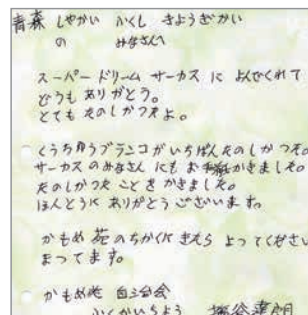 青森 しやかい ふくし きようぎかい
の みなさんへ
スーパー ドリーム サーカス に よんでくれて
どうも ありがとう。
とても たのしかつたよ。
くうちゆうブランコがいちばん たのしかつた。
サーカスのみなさん にも お手紙かきました。
たのしかつた ことを かきました。
ほんとうに ありがとう ございます。
かもめ 苑 のちかくに きたら よつてください
まつてます。
かもめ苑 自治会
ふくかいちよう